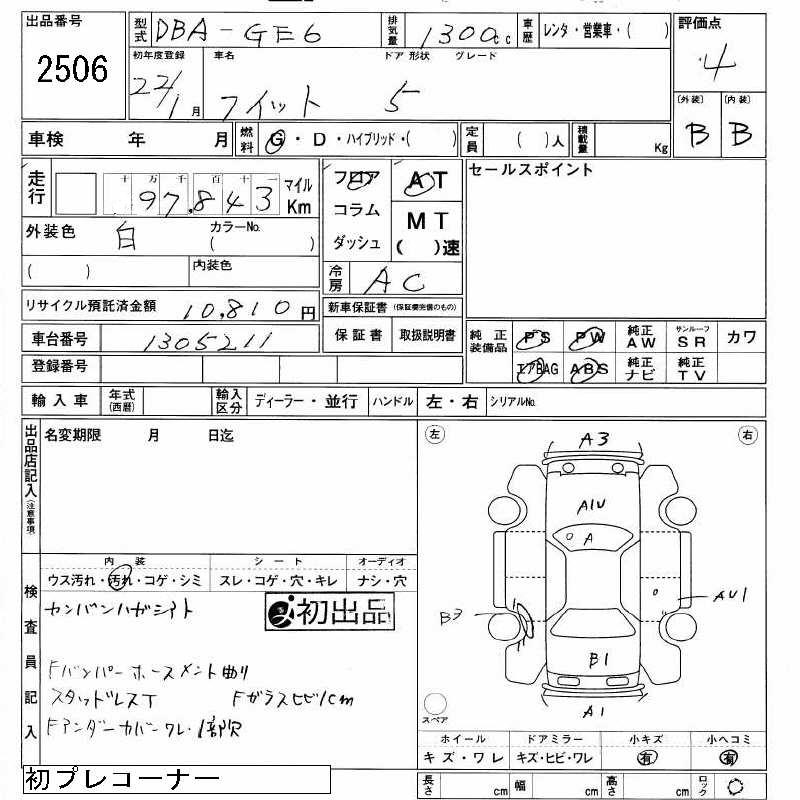 出品番号 型式 DBA-GE6 排気量 1300cc 車歴 レンタ・営業車・( ) 評価点
2506 4
初年度登録 車名 ドア 形状 グレード
22/1月 フィット 5
(外装) (内装)
B B
車検 年 月 燃料 G・D・ハイブリッド・( ) 定員 ( )人 積載量 Kg
走行 十万千百十一 マイル Km
97,843
フロア AT
コラム MT
ダッシュ ( )速
セールスポイント
外装色 白 カラーNo. ( )
( ) 内装色
冷房 AC
リサイクル預託済金額 10,810円
新車保証書 (保証継完備のもの)
保証書 取扱説明書
車台番号 1305211
純正装備品 PS PW 純正AW サンルーフSR カワ
エアBAG ABS 純正ナビ 純正TV
登録番号
輸入車 年式(西暦) 輸入区分 ディーラー・並行 ハンドル 左・右 シリアルNo.
出品店記入(注意事項)
名変期限 月 日迄
左 右
A3
A1U
A
AU1
B3
B1
A1
スペア
内装 シート オーディオ
ウス汚れ・汚れ・コゲ・シミ スレ・コゲ・穴・キレ ナシ・穴
検査員記入
カンバンハガシアト
初出品
Fバンパーホースメント曲り
スタッドレスT Fガラスヒビ1cm
Fアンダーカバーワレ・1部欠
ホイール ドアミラー 小キズ 小ヘコミ
キズ・ワレ キズ・ヒビ・ワレ 有 有
初プレコーナー
長さ cm 幅 cm 高さ cm ロック